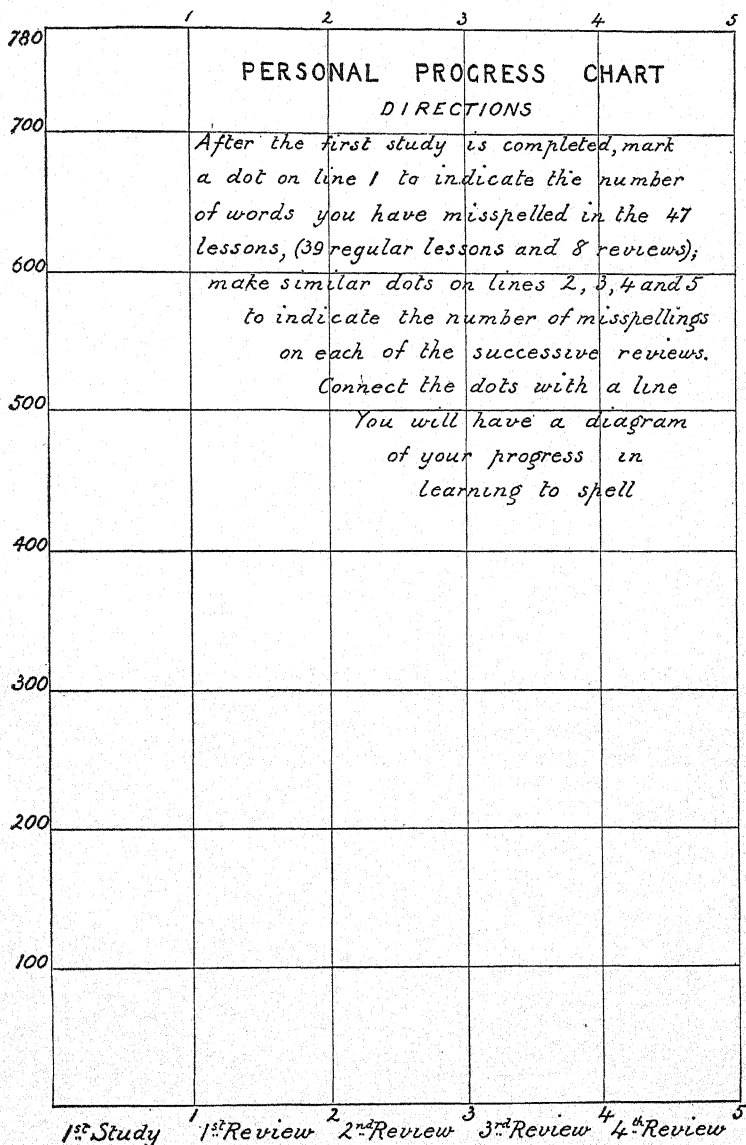 1 2 3 4 5
780
PERSONAL PROGRESS CHART
DIRECTIONS
700
After the first study is completed, mark
a dot on line 1 to indicate the number
of words you have misspelled in the 47
lessons, (39 regular lessons and 8 reviews);
600
make similar dots on lines 2, 3, 4 and 5
to indicate the number of misspellings
on each of the successive reviews.
Connect the dots with a line
500
You will have a diagram
of your progress in
learning to spell
400
300
200
100
1 2 3 4 5
1st Study 1st Review 2nd Review 3rd Review 4th Review